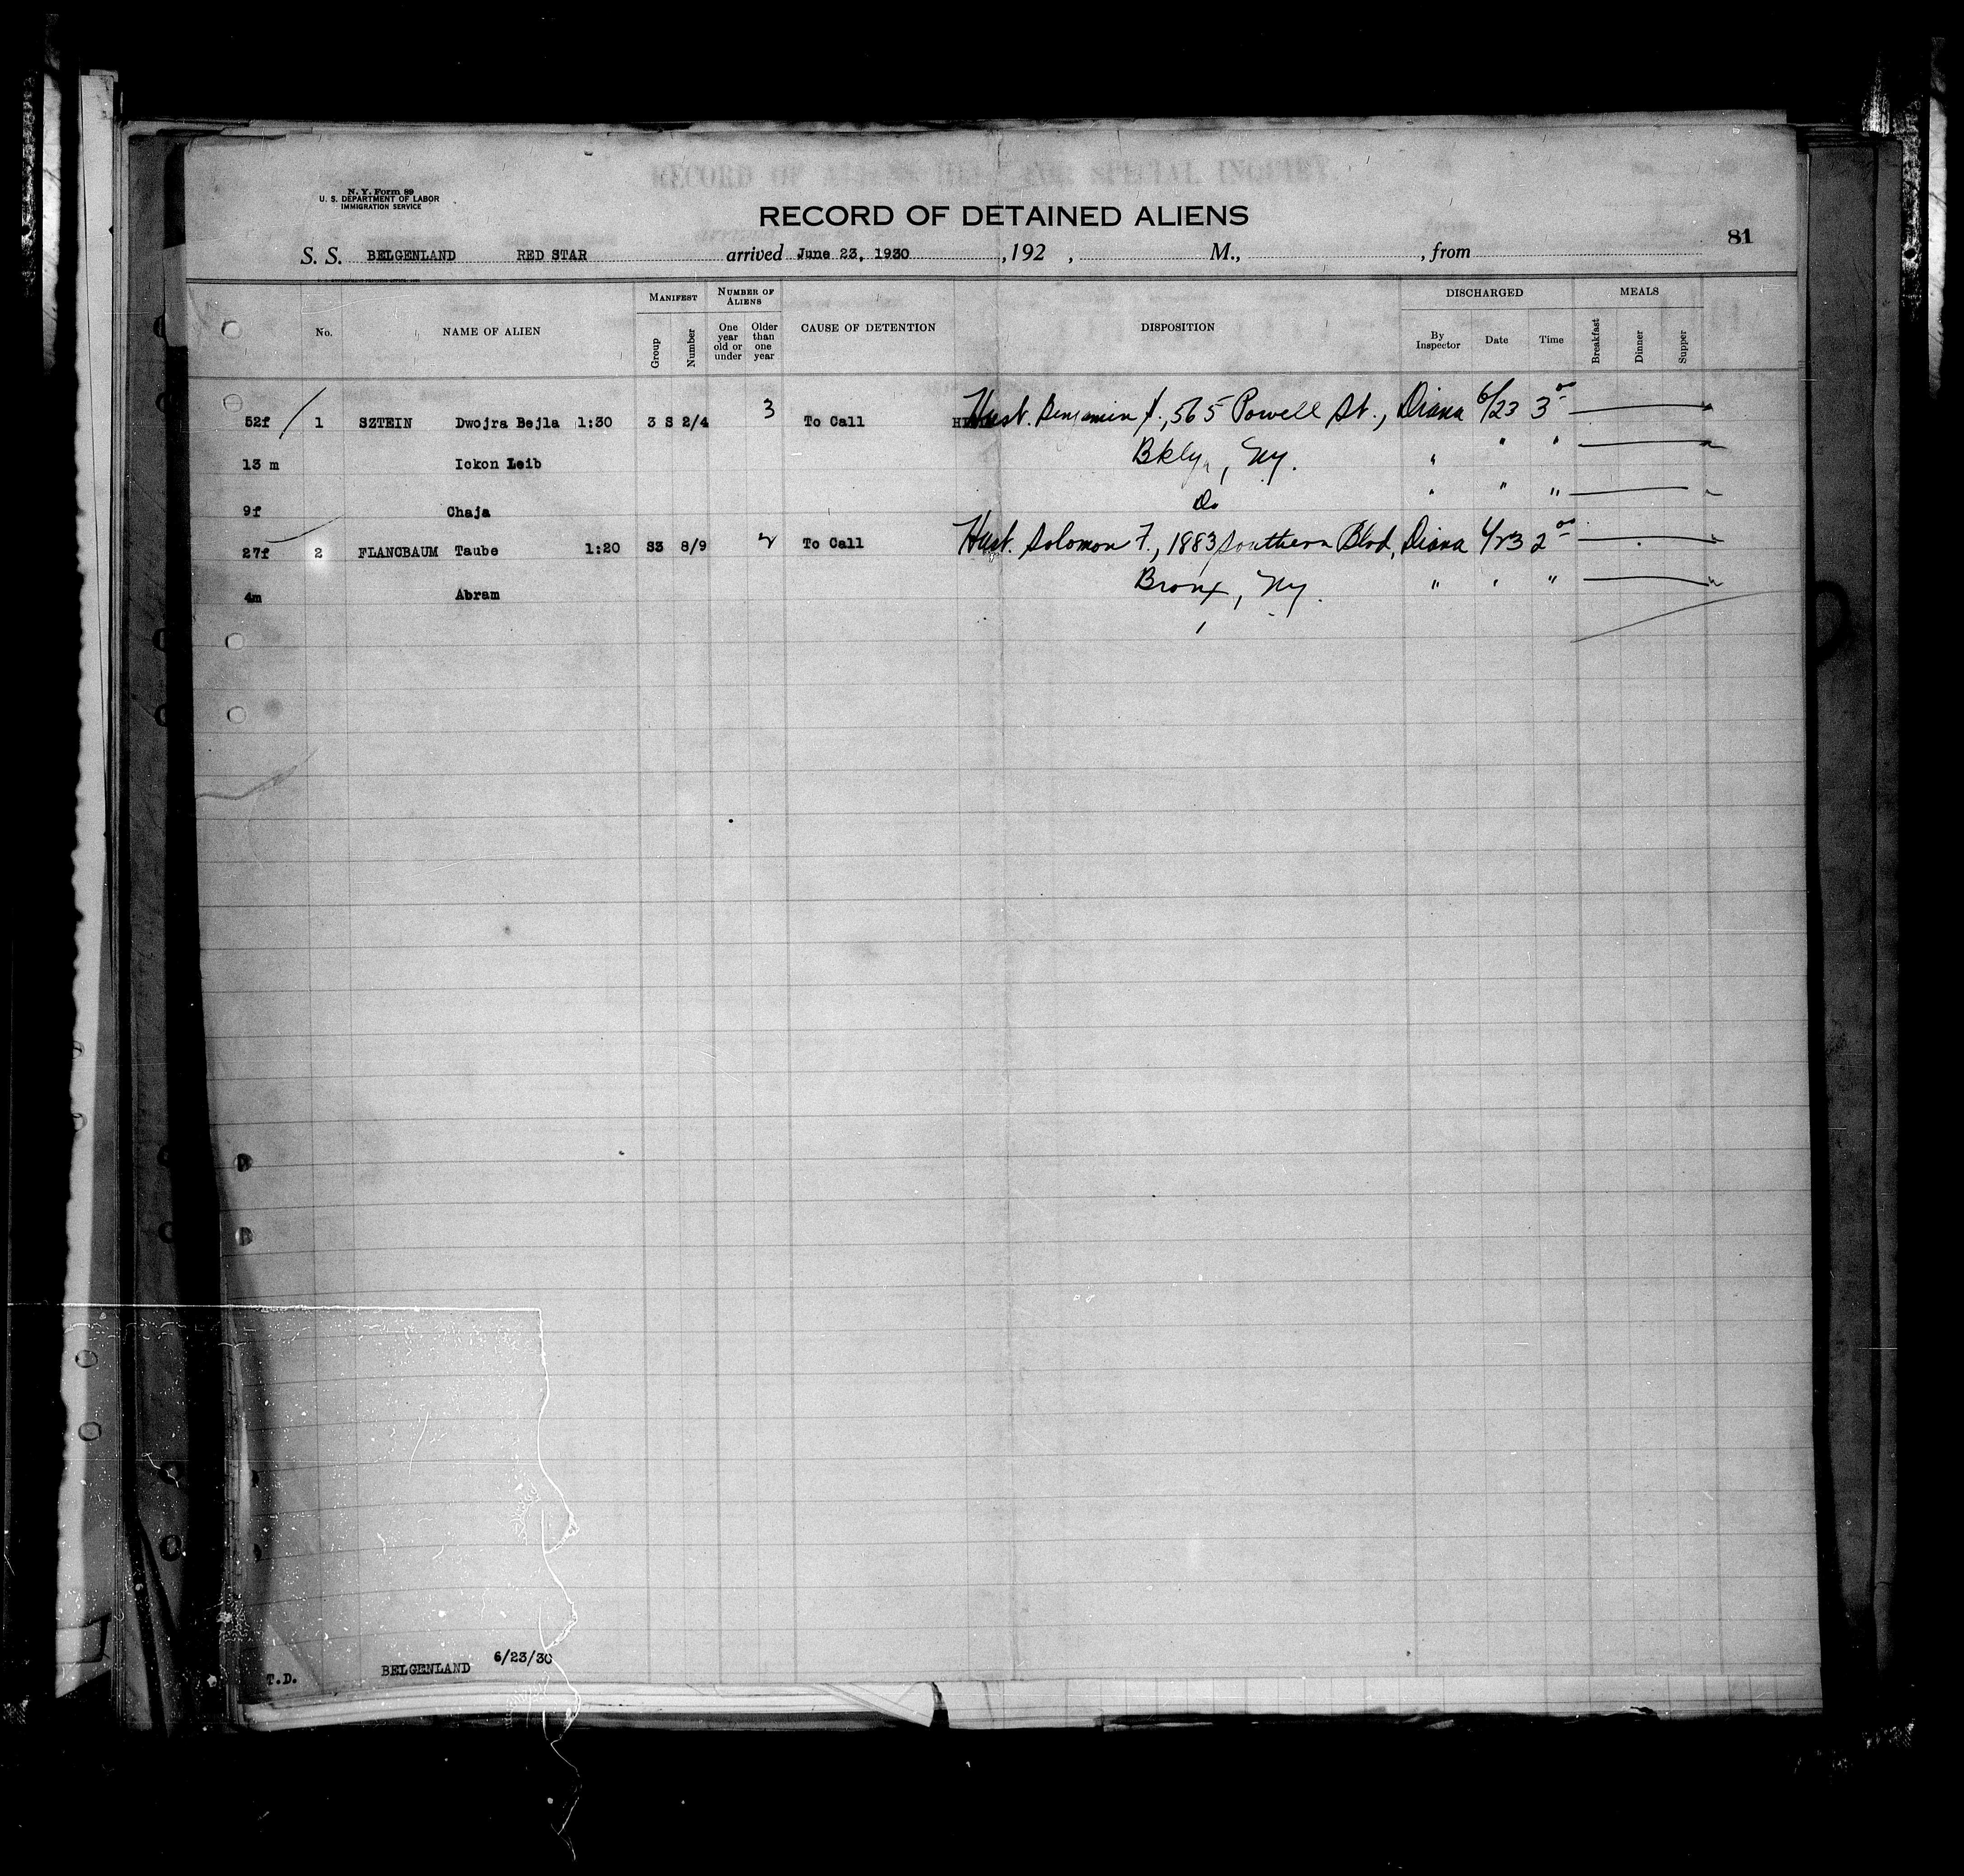 RECORD OF ALIENS HELD FOR SPECIAL INQUIRY.
N. Y. Form 89
U. S. DEPARTMENT OF LABOR
IMMIGRATION SERVICE
RECORD OF DETAINED ALIENS
81
S. S. BELGENLAND RED STAR arrived June 23, 1930, 192 , M., , from
No. NAME OF ALIEN MANIFEST Group Number NUMBER OF ALIENS One year old or under Older than one year CAUSE OF DETENTION DISPOSITION DISCHARGED By Inspector Date Time MEALS Breakfast Dinner Supper
52f 1 SZTEIN Dwojra Bejla 1:30 3 S 2/4 3 To Call Hust. Benjamin, 565 Powell St., Diana 6/23 3 00
13 m Ickon Leib Bklyn, Ny. " " "
9f Chaja Do " " "
27f 2 FLANCBAUM Taube 1:20 S3 8/9 2 To Call Hust. Solomon F., 1883 Southern Blvd, Diana 6/23 2 00
4m Abram Bronx, Ny. " " "
T.D. BELGENLAND 6/23/30